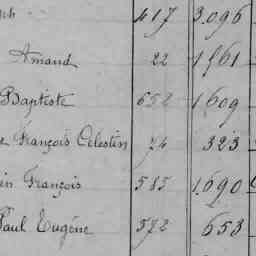 ph 417 3.096
Amand 22 1561
Baptiste 652 1609
e François Célestin 74 323
in François 585 1.690
Paul Eugène 572 653